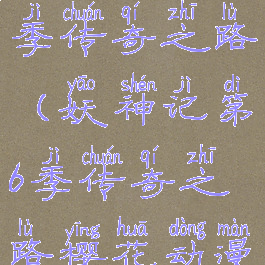 jì chuán qí zhī lù
季传奇之路
yāo shén jì dì
(妖神记第
jì chuán qí zhī
6季传奇之
lù yīng huā dòng màn
路樱花动漫